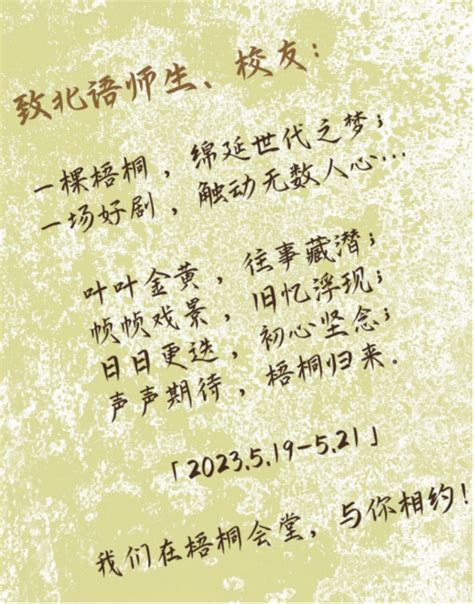 致北语师生、校友：
一棵梧桐，绵延世代之梦；
一场好剧，触动无数人心...
叶叶金黄，往事藏潜；
帧帧戏景，旧忆浮现；
日日更迭，初心坚念；
声声期待，梧桐归来.
「2023.5.19-5.21」
我们在梧桐会堂，与你相约！